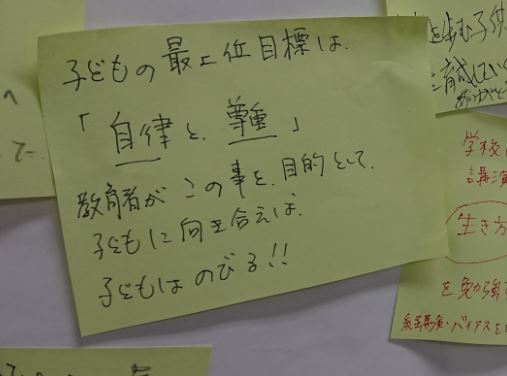 子どもの最上位目標は、
「自律と、尊重」
教育者が この事を、目的として、
子どもに向き合えば、
子どもは のびる!!
を歩む子供
育成していく
学校
講演
生き方
を勉強す
経験・バイアスを